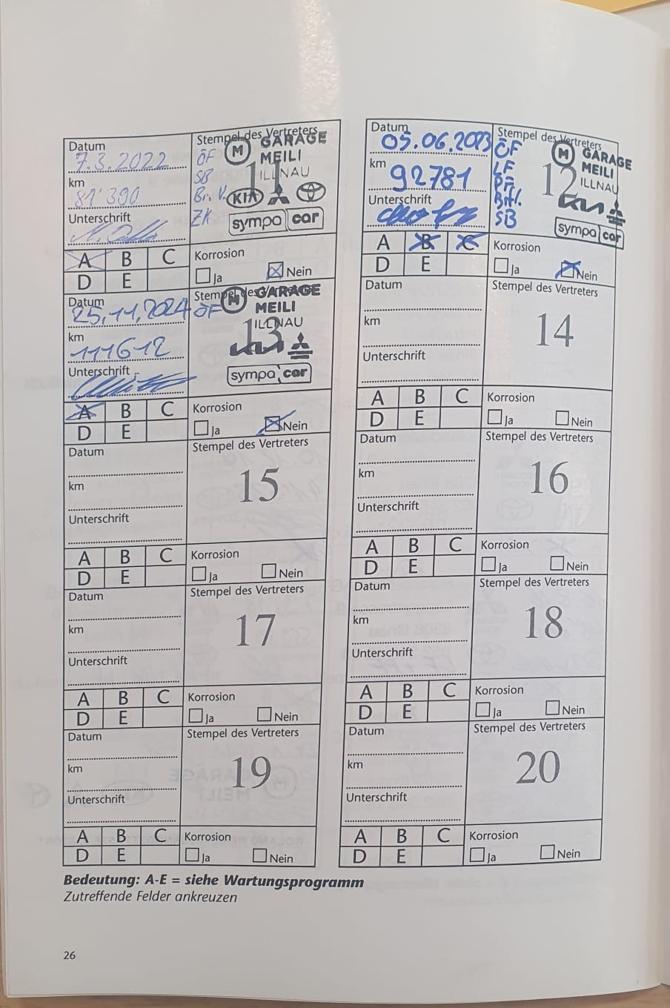 Datum
7.3.2022
km
81'390
Unterschrift
Stempel des Vertreters
11
ÖF
SB
Br. V.
ZK
M GARAGE
MEILI
ILLNAU
KIA
sympa car
A B C
D E
Korrosion
Ja Nein
Datum
05.06.2023
km
92781
Unterschrift
Stempel des Vertreters
12
ÖF
LF
SB
M GARAGE
MEILI
ILLNAU
sympa car
A B C
D E
Korrosion
Ja Nein
Datum
25.11.2024
km
111612
Unterschrift
Stempel des Vertreters
13
ÖF
M GARAGE
MEILI
ILLNAU
sympa car
A B C
D E
Korrosion
Ja Nein
Datum
km
Unterschrift
Stempel des Vertreters
14
A B C
D E
Korrosion
Ja Nein
Datum
km
Unterschrift
Stempel des Vertreters
15
A B C
D E
Korrosion
Ja Nein
Datum
km
Unterschrift
Stempel des Vertreters
16
A B C
D E
Korrosion
Ja Nein
Datum
km
Unterschrift
Stempel des Vertreters
17
A B C
D E
Korrosion
Ja Nein
Datum
km
Unterschrift
Stempel des Vertreters
18
A B C
D E
Korrosion
Ja Nein
Datum
km
Unterschrift
Stempel des Vertreters
19
A B C
D E
Korrosion
Ja Nein
Datum
km
Unterschrift
Stempel des Vertreters
20
A B C
D E
Korrosion
Ja Nein
Bedeutung: A-E = siehe Wartungsprogramm
Zutreffende Felder ankreuzen
26